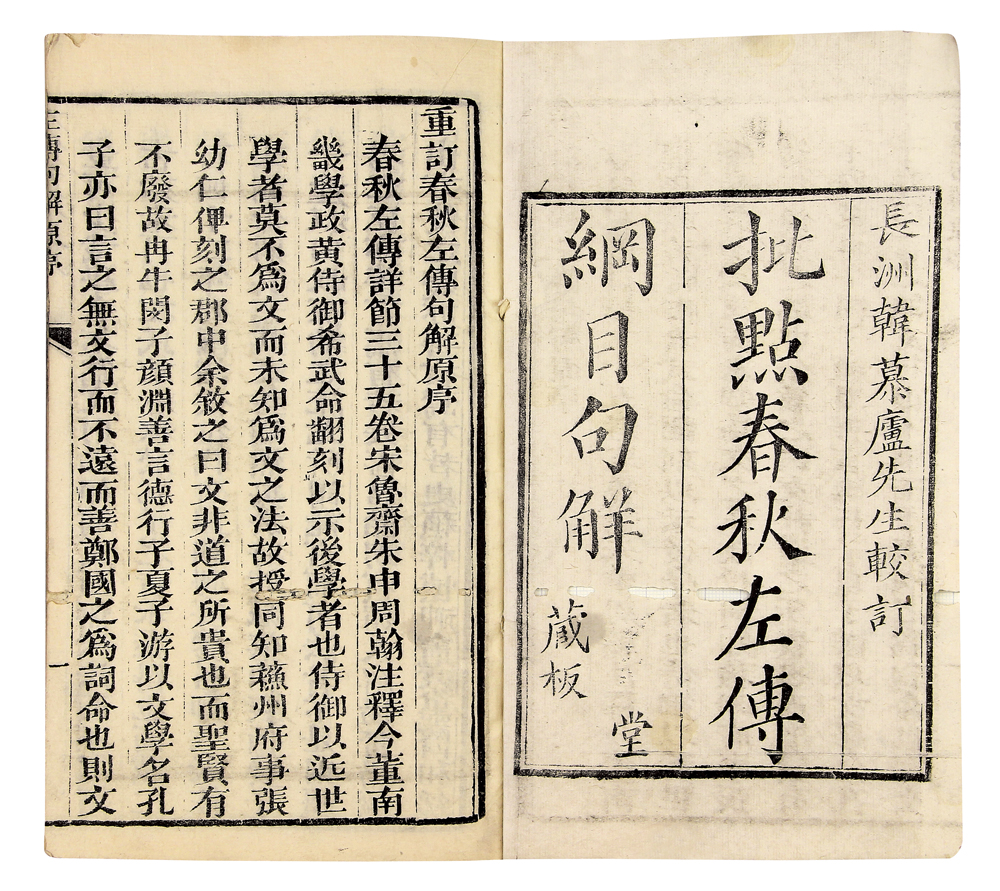 長洲韓慕廬先生較訂
批點春秋左傳
綱目句解
堂
蔵板
重訂春秋左傳句解原序
春秋左傳詳節三十五卷宋魯齋朱申周翰注釋今董南
畿學政黃侍御希武命翻刻以示後學者也侍御以近世
學者莫不爲文而未知爲文之法故授同知蘓州府事張
幼仁俾刻之郡中余敘之曰文非道之所貴也而聖賢有
不廢故冉牛閔子顔淵善言德行子夏子游以文學名孔
子亦曰言之無文行而不遠而善鄭國之爲詞命也則文
左傳句解原序
一